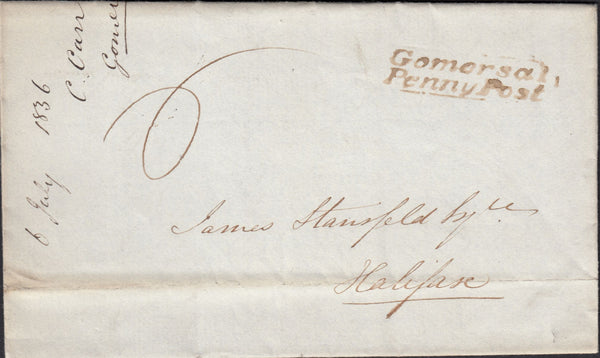 6 July 1836
C. Carr
Gomer
6
Gomersal
Penny Post
James Stansfeld Esqre
Halifax